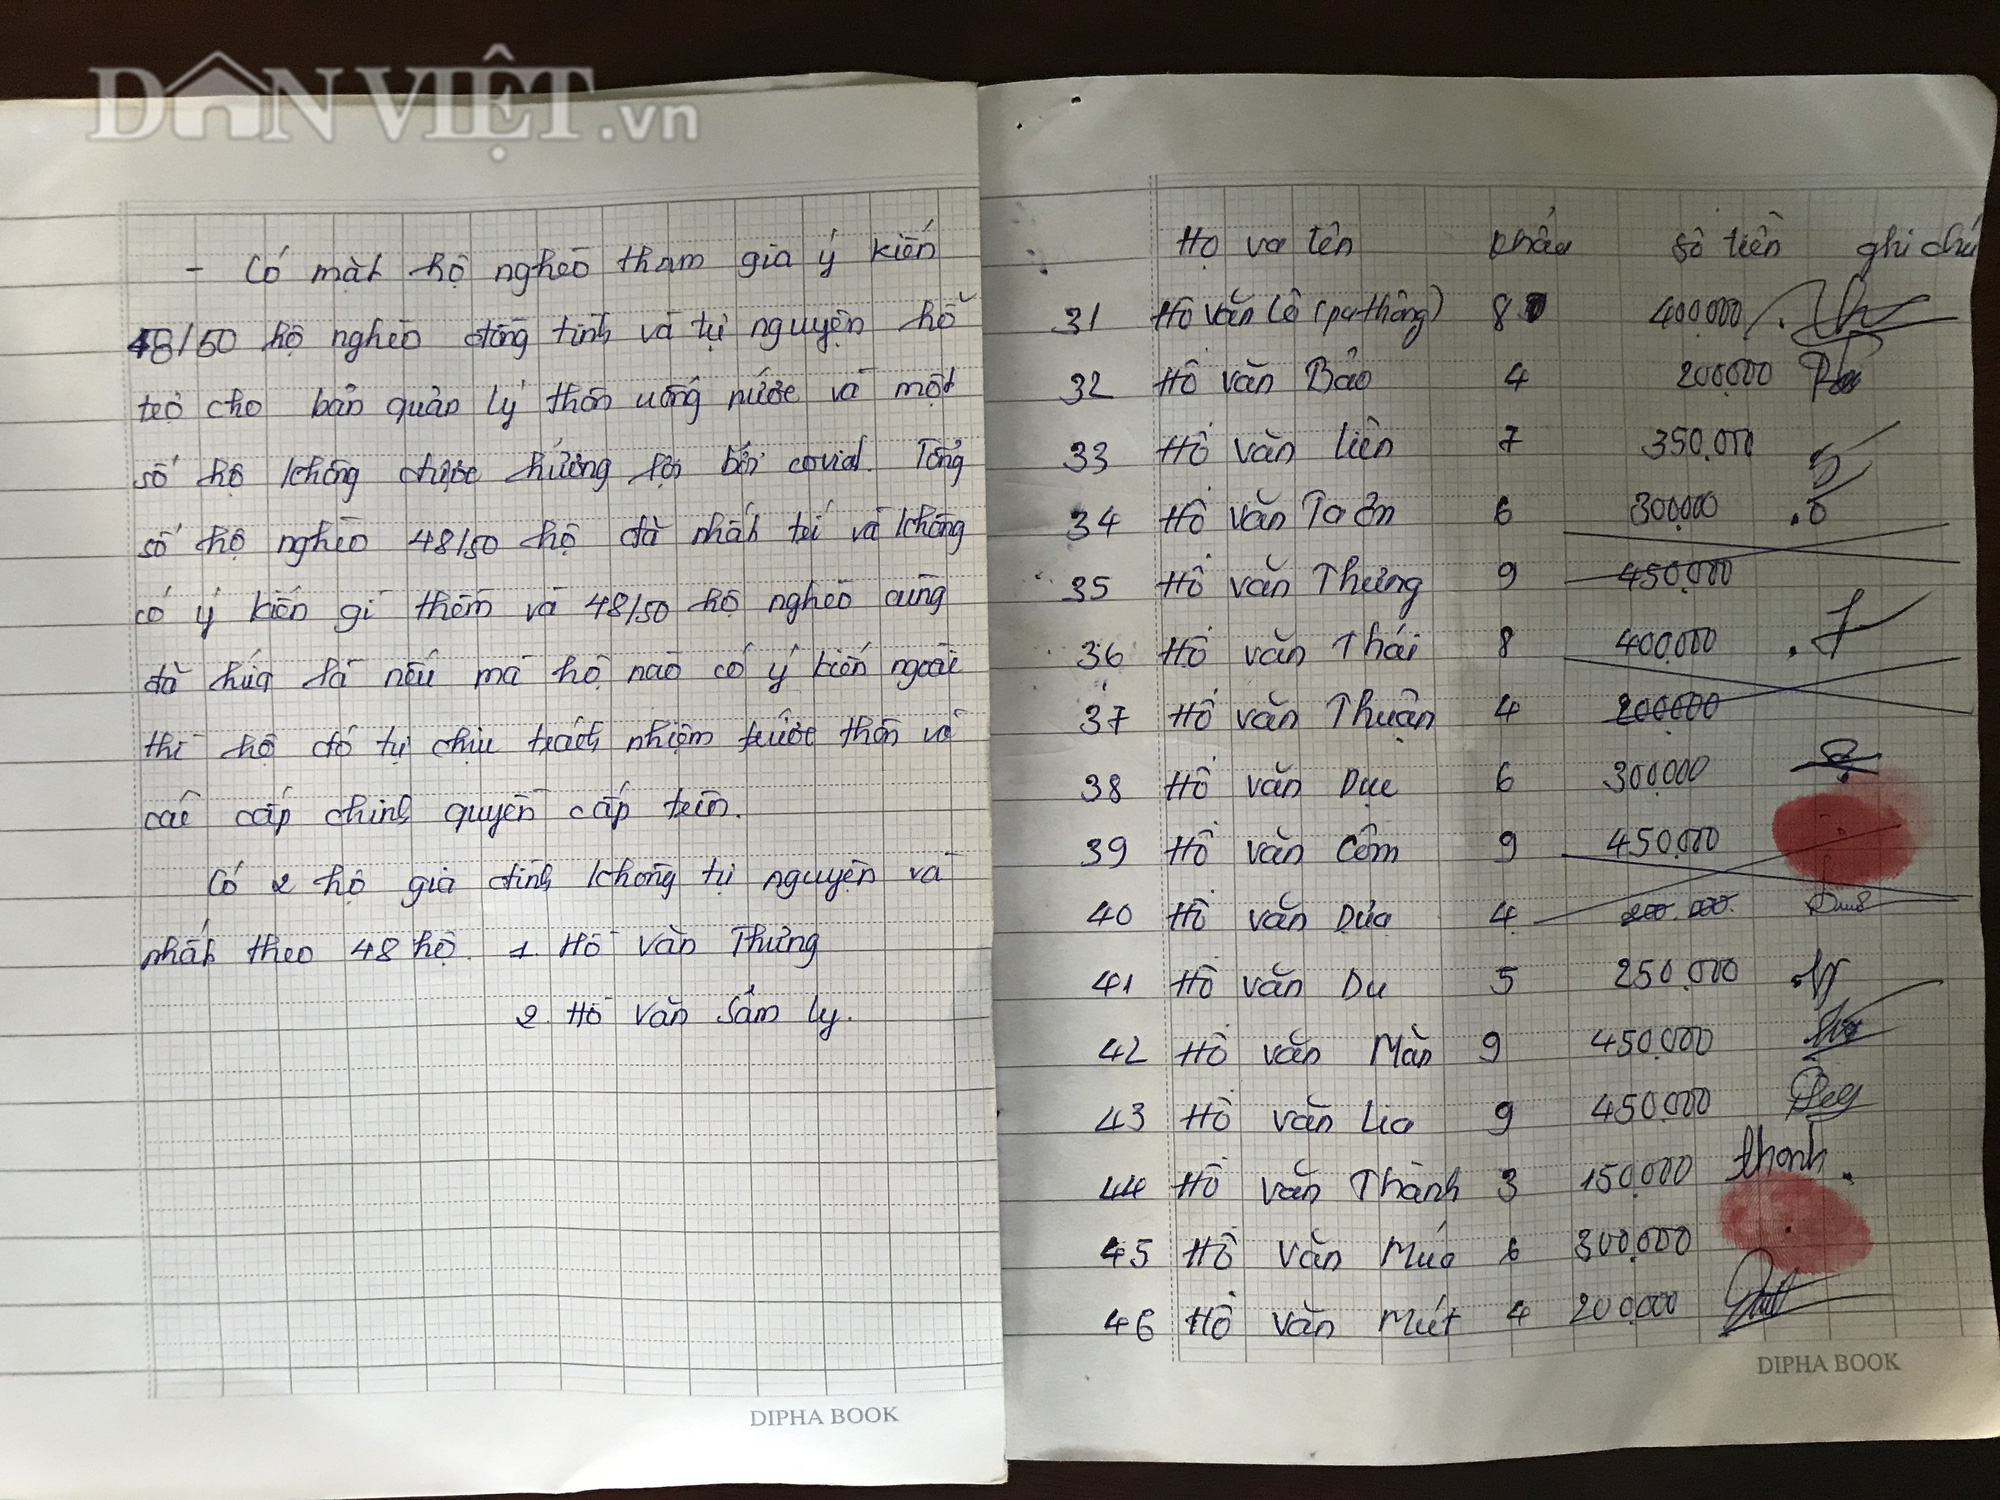 DÂN VIỆT.vn
- Có mặt hộ nghèo tham gia ý kiến
48/50 hộ nghèo đồng tình và tự nguyện hỗ
trợ cho bản quản lý thôn uống nước và một
số hộ không được hưởng lợi bởi covid. Tổng
số hộ nghèo 48/50 hộ đã nhất trí và không
có ý kiến gì thêm và 48/50 hộ nghèo cũng
đã hứa là nếu mà hộ nào có ý kiến ngoài
thì hộ đó tự chịu trách nhiệm trước thôn và
các cấp chính quyền cấp trên.
Có 2 hộ gia đình không tự nguyện và
nhất theo 48 hộ. 1. Hồ Văn Thưng
2. Hồ Văn Sâm Ly.
DIPHA BOOK
Họ va tên khẩu số tiền ghi chú
31 Hồ Văn Lê (pa thông) 8 400.000
32 Hồ Văn Bảo 4 200.000
33 Hồ Văn Liên 7 350.000
34 Hồ Văn Ta ơn 6 300.000
35 Hồ Văn Thưng 9 450.000
36 Hồ Văn Thái 8 400.000
37 Hồ Văn Thuận 4 200.000
38 Hồ Văn Dục 6 300.000
39 Hồ Văn Côm 9 450.000
40 Hồ Văn Dứa 4 200.000
41 Hồ Văn Du 5 250.000
42 Hồ Văn Màn 9 450.000
43 Hồ Văn Lia 9 450.000
44 Hồ Văn Thành 3 150.000 thanh
45 Hồ Văn Múa 6 300.000
46 Hồ Văn Mút 4 200.000
DIPHA BOOK